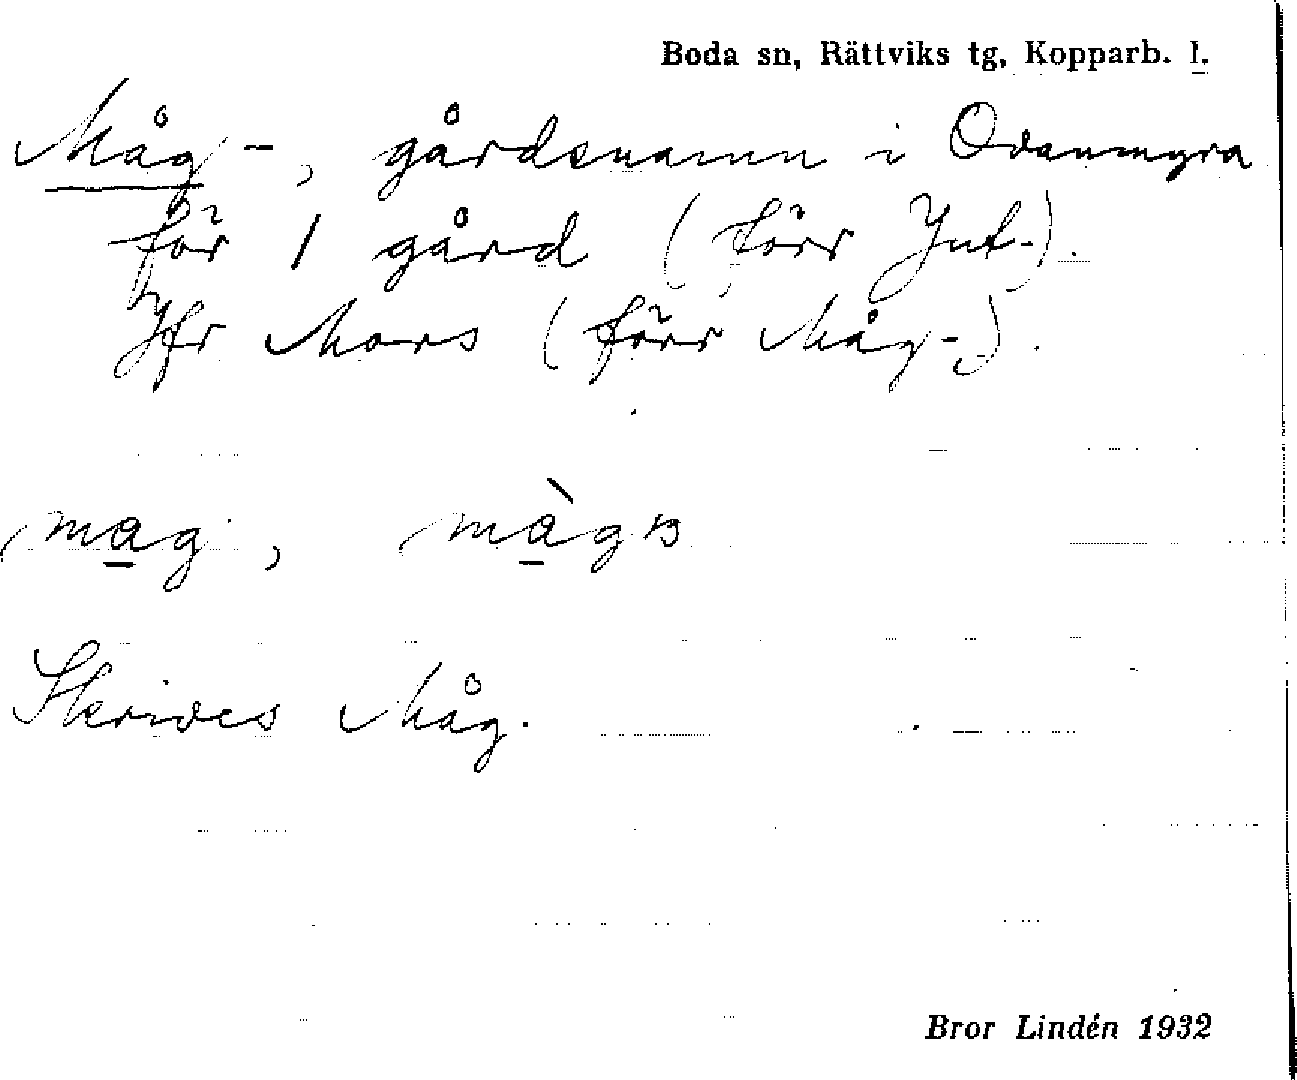 Boda sn, Rättviks tg, Kopparb. l.
Måg-, gårdsnamn i Ovanmyra
för 1 gård (förr Jut-).
Jfr Mars (förr Måg-).
mag, màgas
Skrives Måg.
Bror Lindén 1932